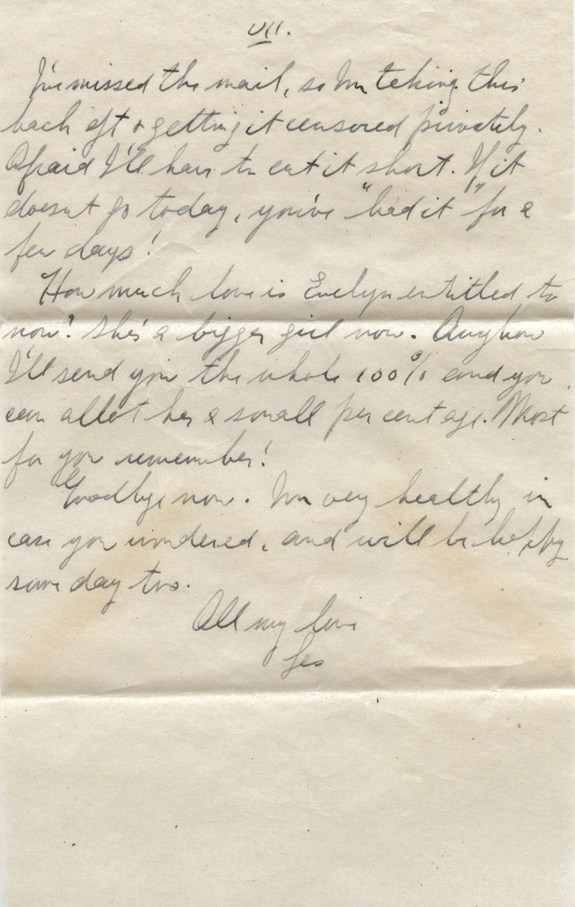 VII.
I've missed the mail, so I'm taking this
back aft & getting it censored privately.
Afraid I'll have to cut it short. If it
doesn't go today, you've "had it" for a
few days!
How much love is Evelyn entitled to
now? She's a bigger girl now. Anyhow
I'll send you the whole 100% and you
can allot her a small percentage. Most
for you remember!
Goodbye now. I'm very healthy in
case you wondered, and will be happy
some day too.
All my love
Les